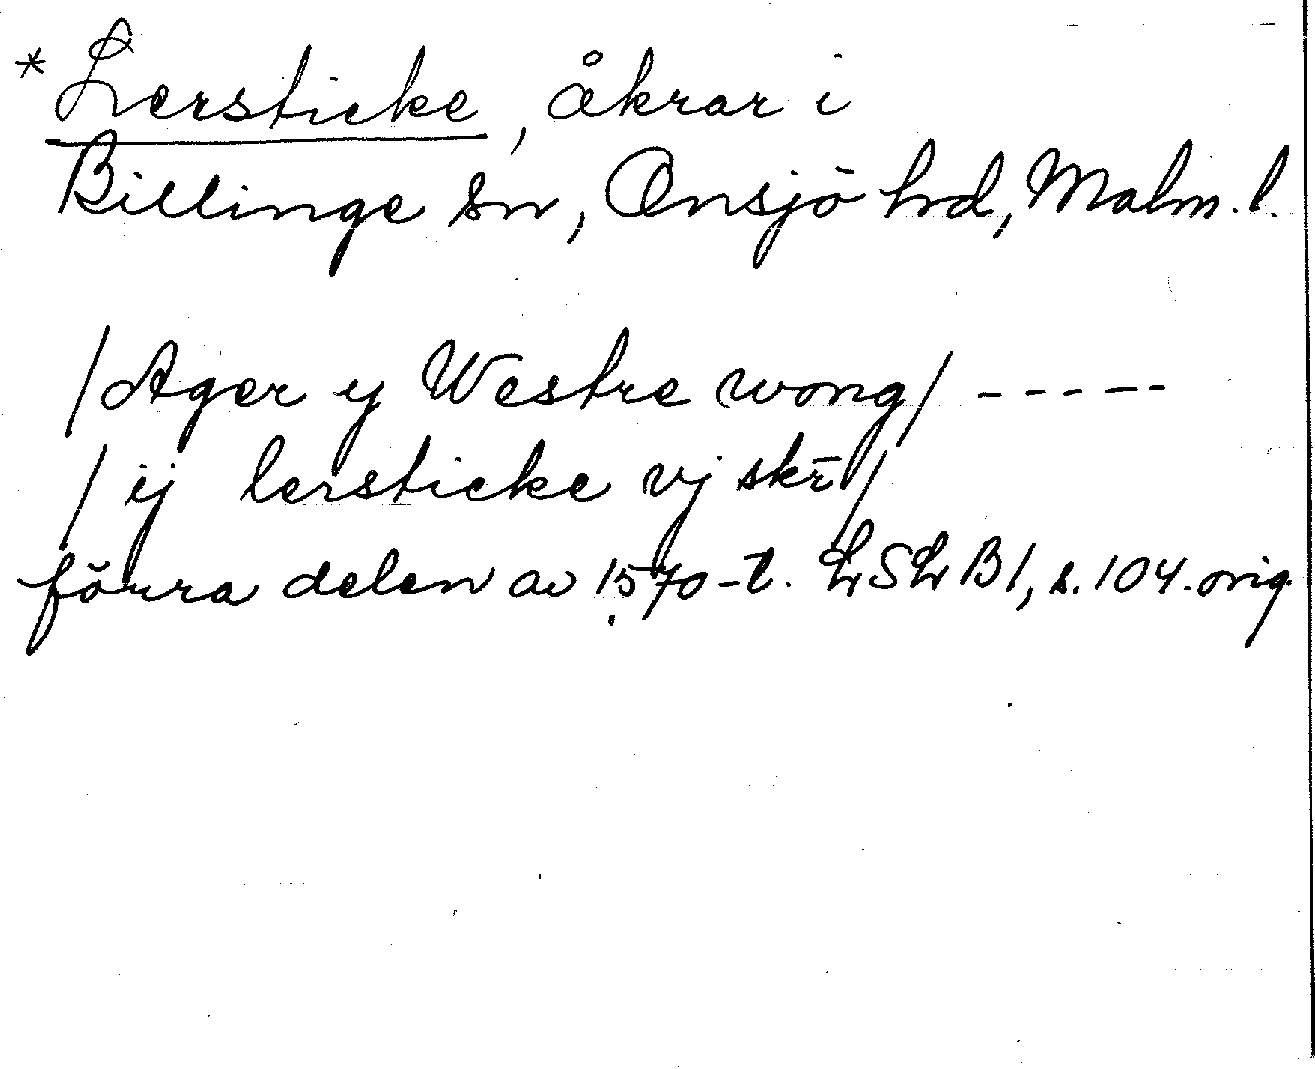 *Lersticke, åkrar i
Billinge sn, Onsjö hrd, Malm. l.
/Ager y Westre wong/ -----
/ ij lersticke vj skr̄/
förra delen av 1570-t. LSLB1, s. 104. orig.